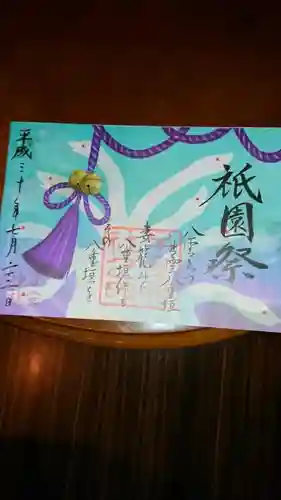 祇園祭
八雲たつ
出雲八重垣
妻籠みに
八重垣作る
その
八重垣を
平成三十年七月二十二日